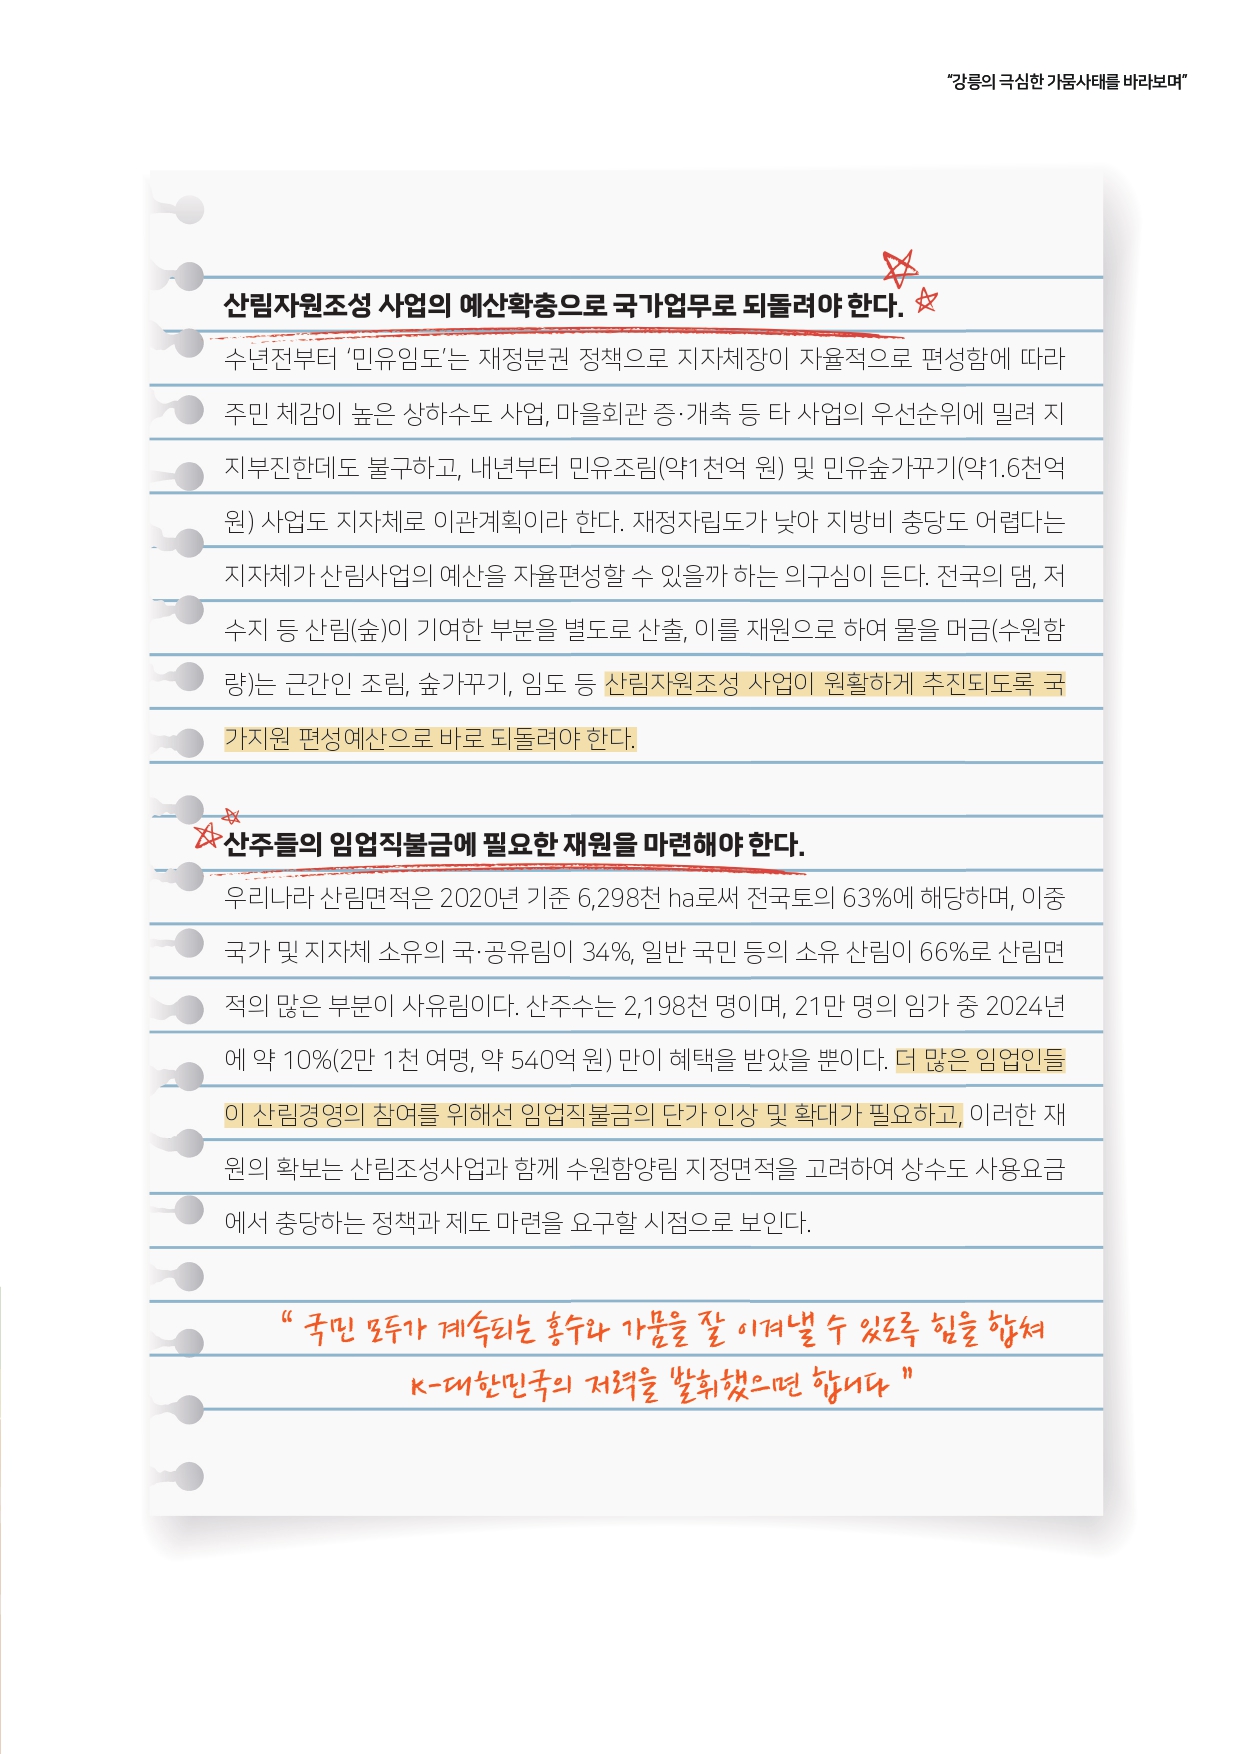 “강릉의 극심한 가뭄사태를 바라보며”
산림자원조성 사업의 예산확충으로 국가업무로 되돌려야 한다.
수년전부터 ‘민유임도’는 재정분권 정책으로 지자체장이 자율적으로 편성함에 따라
주민 체감이 높은 상하수도 사업, 마을회관 증·개축 등 타 사업의 우선순위에 밀려 지
지부진한데도 불구하고, 내년부터 민유조림(약1천억 원) 및 민유숲가꾸기(약1.6천억
원) 사업도 지자체로 이관계획이라 한다. 재정자립도가 낮아 지방비 충당도 어렵다는
지자체가 산림사업의 예산을 자율편성할 수 있을까 하는 의구심이 든다. 전국의 댐, 저
수지 등 산림(숲)이 기여한 부분을 별도로 산출, 이를 재원으로 하여 물을 머금(수원함
량)는 근간인 조림, 숲가꾸기, 임도 등 산림자원조성 사업이 원활하게 추진되도록 국
가지원 편성예산으로 바로 되돌려야 한다.
산주들의 임업직불금에 필요한 재원을 마련해야 한다.
우리나라 산림면적은 2020년 기준 6,298천 ha로써 전국토의 63%에 해당하며, 이중
국가 및 지자체 소유의 국·공유림이 34%, 일반 국민 등의 소유 산림이 66%로 산림면
적의 많은 부분이 사유림이다. 산주수는 2,198천 명이며, 21만 명의 임가 중 2024년
에 약 10%(2만 1천 여명, 약 540억 원) 만이 혜택을 받았을 뿐이다. 더 많은 임업인들
이 산림경영의 참여를 위해선 임업직불금의 단가 인상 및 확대가 필요하고, 이러한 재
원의 확보는 산림조성사업과 함께 수원함양림 지정면적을 고려하여 상수도 사용요금
에서 충당하는 정책과 제도 마련을 요구할 시점으로 보인다.
“ 국민 모두가 계속되는 홍수와 가뭄을 잘 이겨낼 수 있도록 힘을 합쳐
K-대한민국의 저력을 발휘했으면 합니다 ”